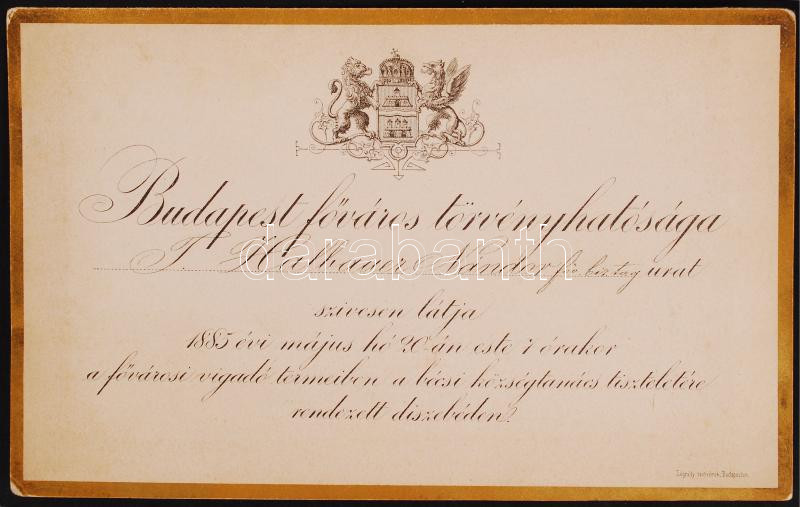 Budapest főváros törvényhatósága
T. Halbauer Nándor főv. biz. tag urat
szivesen látja
1885 évi május hó 20-án este 7 órakor
a fővárosi vigadó termeiben a bécsi községtanács tiszteletére
rendezett diszebéden.
darabanth
Légrády testvérek, Budapesten.